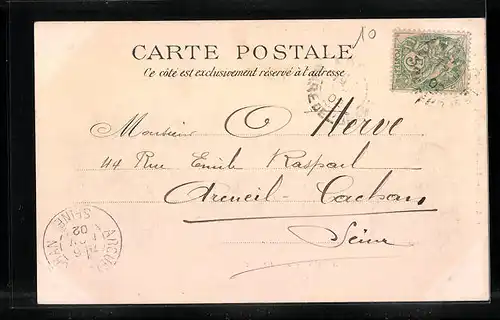 10
CARTE POSTALE
Ce côté est exclusivement réservé à l'adresse
Monsieur O Herve
44 Rue Emile Raspail
Arcueil-Cachan
Seine
02